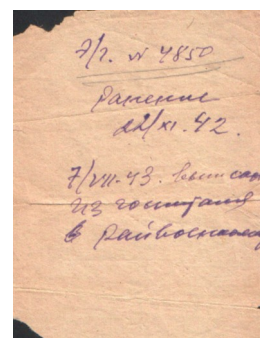 Э/г. № 4850
Ранение
22/XI. 42.
7/VII-43. выписан
из госпиталя
в Райвоенкомат